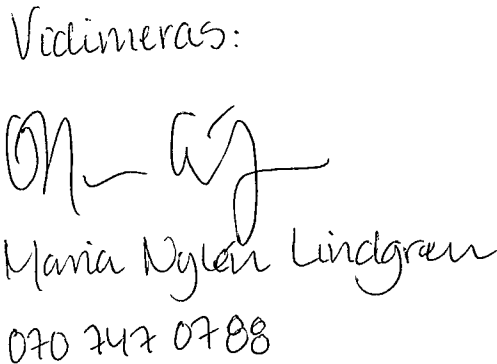 Vidimeras:
Maria Nylén Lindgren
070 747 0788